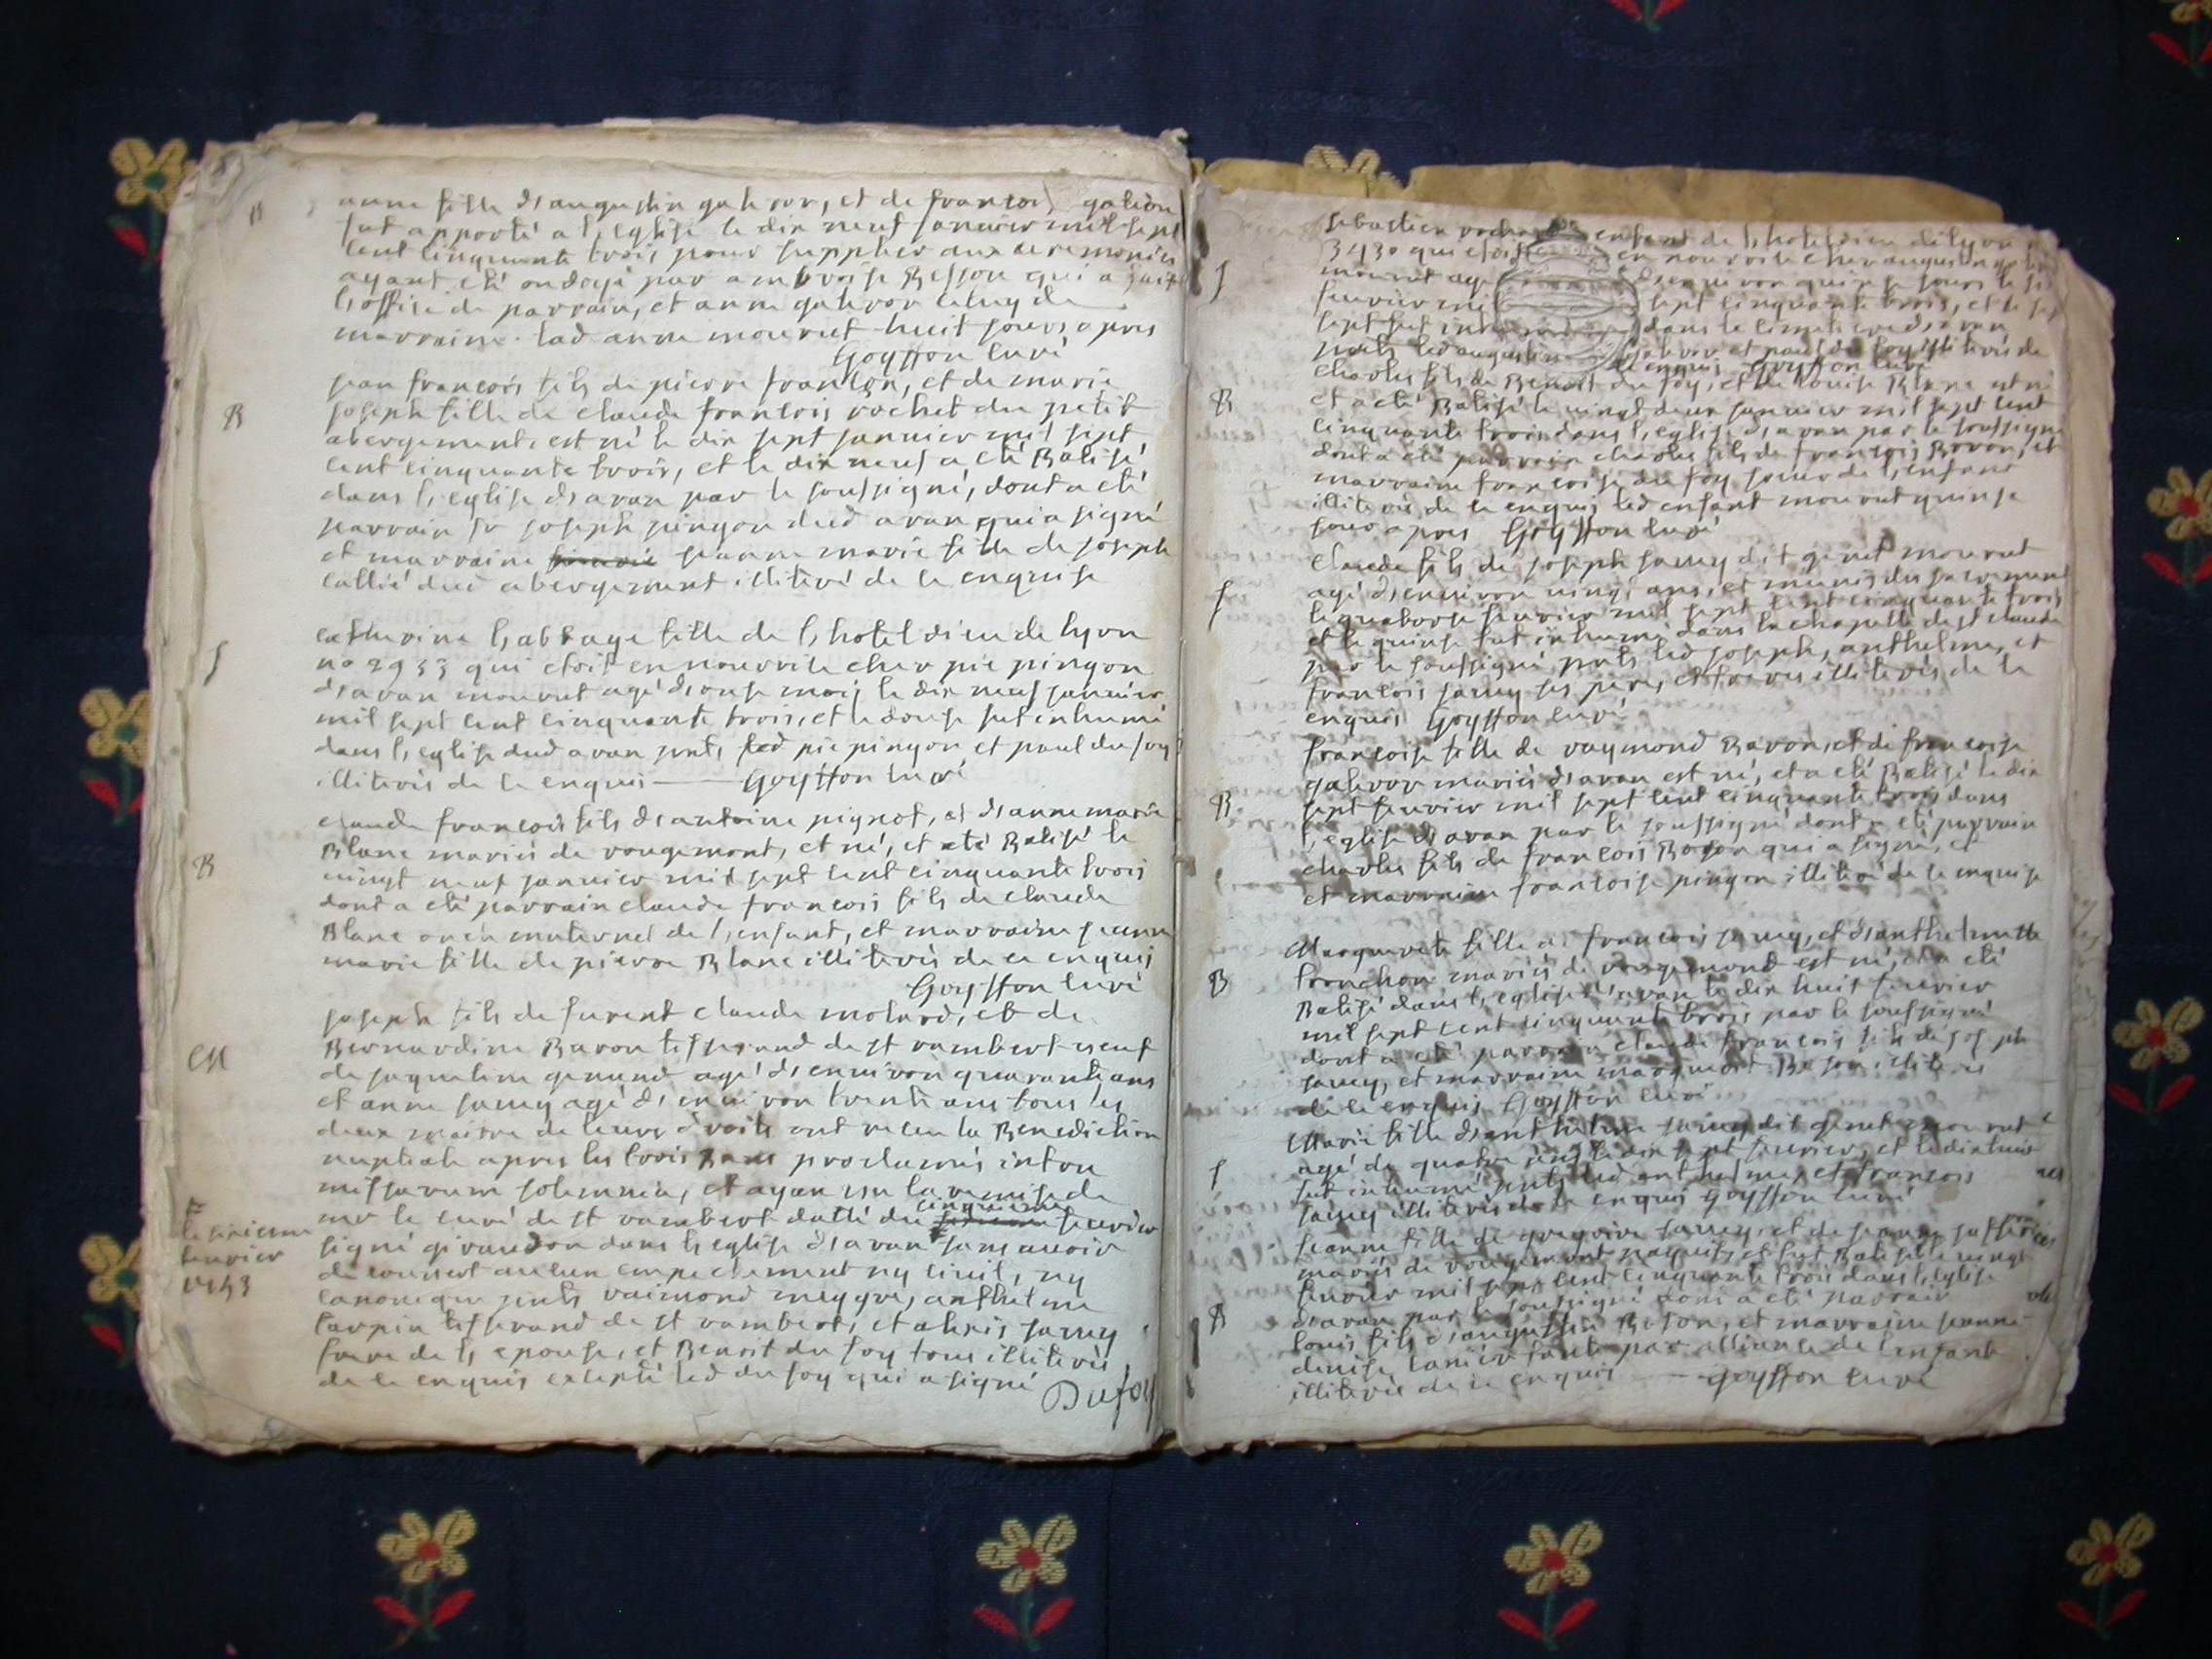 B
anne fille d'augustin galivor, et de francois galivor
fut apporté a l'eglise le dix neuf janvier mil sept
cent cinquante trois pour supplier aux ceremonies
ayant eté ondoyé par ambroise Besson qui a fait
l'office de parrain, et anne galivor celuy de
marraine. lad anne mourut huit jours apres
Goyffon curé
B
jean francois fils de pierre franson, et de marie
joseph fille de claude francois rochet du petit
abergement, est né le dix sept janvier mil sept
cent cinquante trois, et le dix neuf a eté Batisé
dans l'eglise d'aran par le soussigné, dont a eté
parrain sr joseph pingon dud aran qui a signé
et marraine jeanne marie fille de joseph
callié dud abergement illiteré de ce enquise
f
catherine l'abbaye fille de l'hotel dieu de lyon
no 2933 qui etoit en nourrice chez pie pingon
d'aran mourut agé d'onse mois le dix neuf janvier
mil sept cent cinquante trois, et le douse fut inhumé
dans l'eglise dud aran pnts led pie pingon et paul du foy
illiterés de ce enquis Goyffon curé
B
claude francois fils d'antoine pignot, et d'anne marie
Blanc mariés de rougemont, et né, et eté Batisé le
vingt neuf janvier mil sept cent cinquante trois
dont a eté parrain claude francois fils de claude
Blanc oncle maternel de l'enfant, et marraine jeanne
marie fille de pierre Blanc illiterés de ce enquis
Goyffon curé
M
joseph fils de furent claude molard, et de
Bernardine Baron tisserand de st rambert veuf
de jaqueline genand agé d'environ quarante ans
et anne jamey agé d'environ trente ans tous les
deux maitre de leurs droits ont receu la Benediction
nuptiale apres les trois Bans proclamés intou
missarum solemnia, et ayan vu la remise de
cinquieme
mr le curé de st rambert datté du fevrier
le sixieme
fevrier
1753
signé giraudon dans l'eglise d'aran sans avoir
decouvert aucun empechement ny civil, ny
canonique pnts raimond meygre, anthelme
carpin tisserand de st rambert, et alexis jamey
frere de l'epouse, et Benoit du foy tous illiterés
de ce enquis excepté led du foy qui a signé
Dufoy
sebastien enfant de l'hotel dieu de lyon
3430 qui etoit en nourrice chez augustin
f
mourut agé d'environ quinse jours le
fevrier mil sept cinquante trois, et le
sept fut dans le cimetiere d'aran
pnts led augustin galivor et paul du foy illiterés de
ce enquis Goyffon curé
B
charles fils de Benoit du foy, et de louise Blanc est né
et a eté Batisé le vingt deux janvier mil sept cent
cinquante trois dans l'eglise d'aran par le soussigné
dont a eté parrain charles fils de francois Baron, et
marraine francoise du foy soeur de l'enfant
illiterés de ce enquis led enfant mourut quinse
jours apres Goyffon curé
f
claude fils de joseph jamey dit genet mourut
agé d'environ vingt ans, et munis des sacrements
le quatorse fevrier mil sept cent cinquante trois
et le quinse fut inhumé dans la chapelle de st claude
par le soussigné pnts led joseph, anthelme, et
francois jamey ses pere, et freres illiterés de ce
enquis Goyffon curé
B
francoise fille de raymond Baron, et de francoise
galivor mariés d'aran est né, et a eté Batisé le dix
sept fevrier mil sept cent cinquante trois dans
l'eglise d'aran par le soussigné dont a eté parrain
charles fils de francois Baron qui a signé, et
et marraine francoise pingon illiteré de ce enquise
B
Marguerite fille de francois jamey, et d'anthelmette
tronchon mariés de rougemond est né, et a eté
Batisé dans l'eglise d'aran le dix huit fevrier
mil sept cent cinquante trois par le soussigné
dont a eté parrain claude francois fils de joseph
jamey, et marraine Beson illiterés
de ce enquis Goyffon curé
f
Marie fille d'anthelme jamey dit genet mourut
agé de quatre ans le dix sept fevrier, et le dix huit
fut inhumé pnts led anthelme, et francois
jamey illiterés de ce enquis Goyffon curé
B
jeanne fille de gregoire jamey, et de jeanne
mariés de rougemont naquit, et fut Batisé le vingt
fevrier mil sept cent cinquante trois dans l'eglise
d'aran par le soussigné dont a eté parrain
louis fils d'augustin Beson, et marraine jeanne
denise tante par alliance de l'enfant
illiterés de ce enquis Goyffon curé